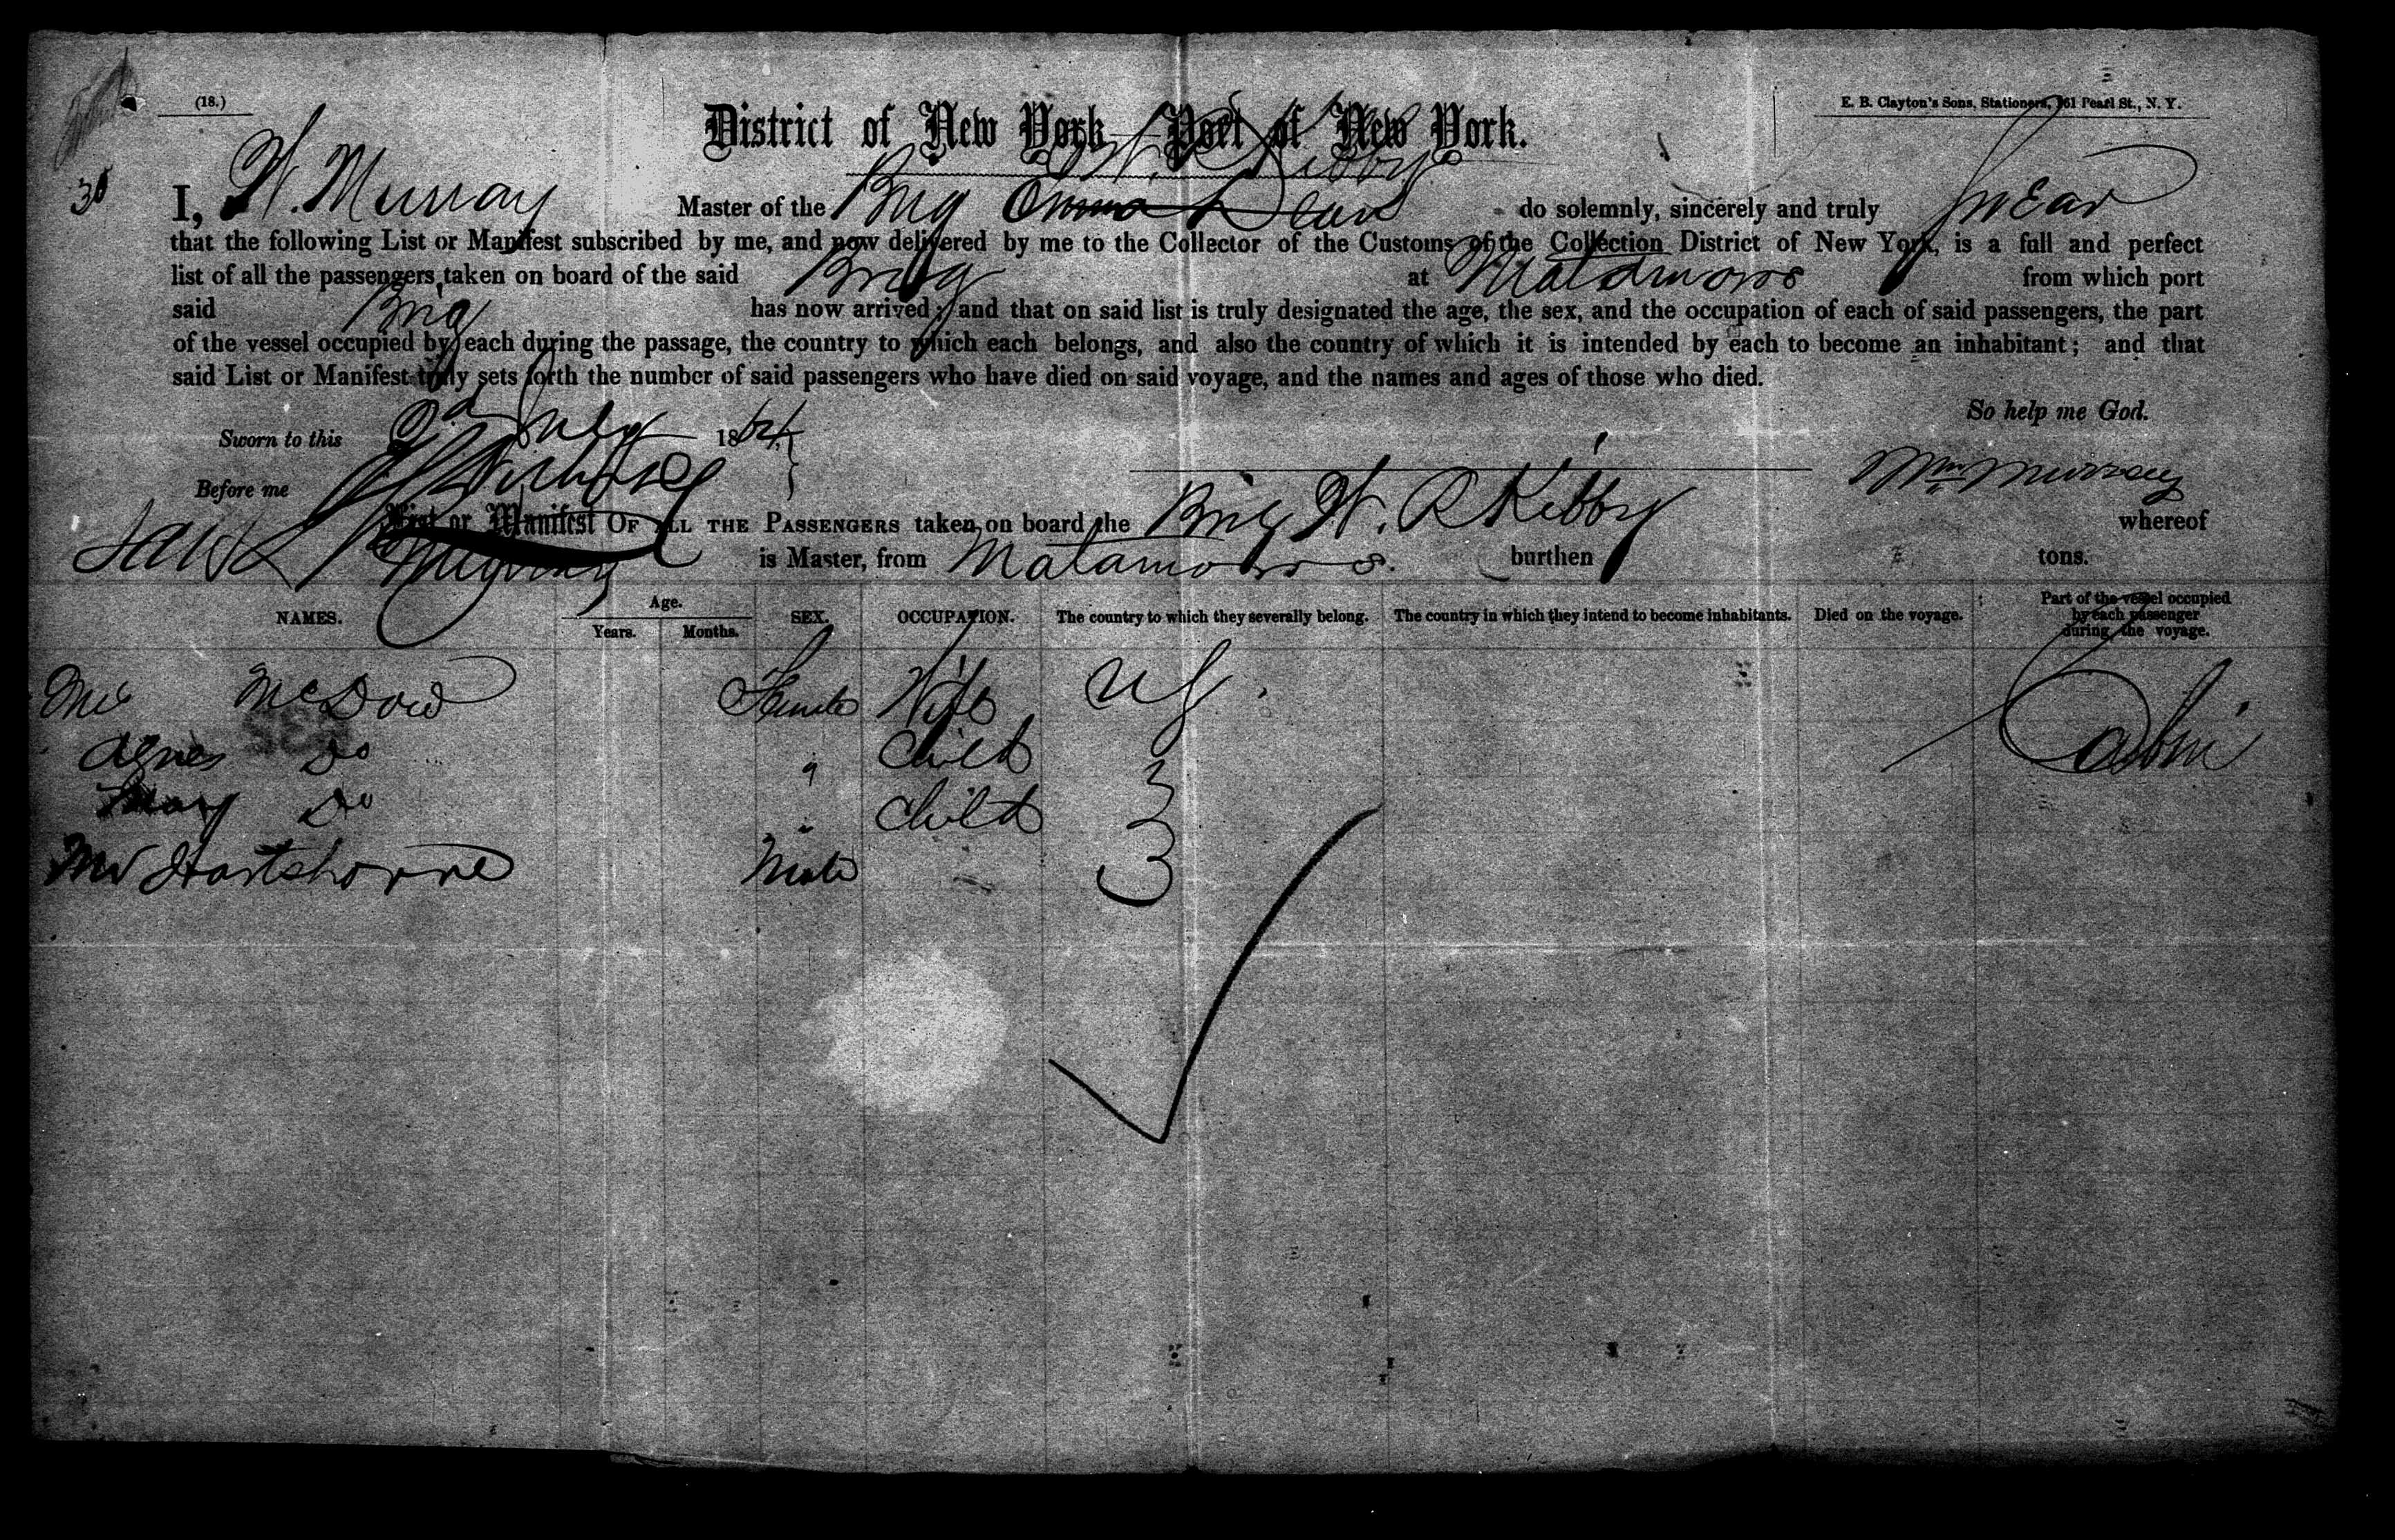 (18.)
E. B. Clayton's Sons, Stationers, 161 Pearl St., N. Y.
District of New York — Port of New York.
W. R. Kibby
I, W. Murray Master of the Brig do solemnly, sincerely and truly swear
that the following List or Manifest subscribed by me, and now delivered by me to the Collector of the Customs of the Collection District of New York, is a full and perfect
list of all the passengers taken on board of the said Brig at Matamoros from which port
said Brig has now arrived; and that on said list is truly designated the age, the sex, and the occupation of each of said passengers, the part
of the vessel occupied by each during the passage, the country to which each belongs, and also the country of which it is intended by each to become an inhabitant; and that
said List or Manifest truly sets forth the number of said passengers who have died on said voyage, and the names and ages of those who died.
So help me God.
Sworn to this 2d 1864
Before me Wm Murray
List or Manifest OF ALL THE PASSENGERS taken on board the Brig W. R Kibby whereof
is Master, from Matamoros. burthen tons.
NAMES. Age. Years. Months. SEX. OCCUPATION. The country to which they severally belong. The country in which they intend to become inhabitants. Died on the voyage. Part of the vessel occupied by each passenger during the voyage.
McDow Female Wife US. Cabin
Agnes Do " Child
Mary Do " Child
Mr Hartshorne Male